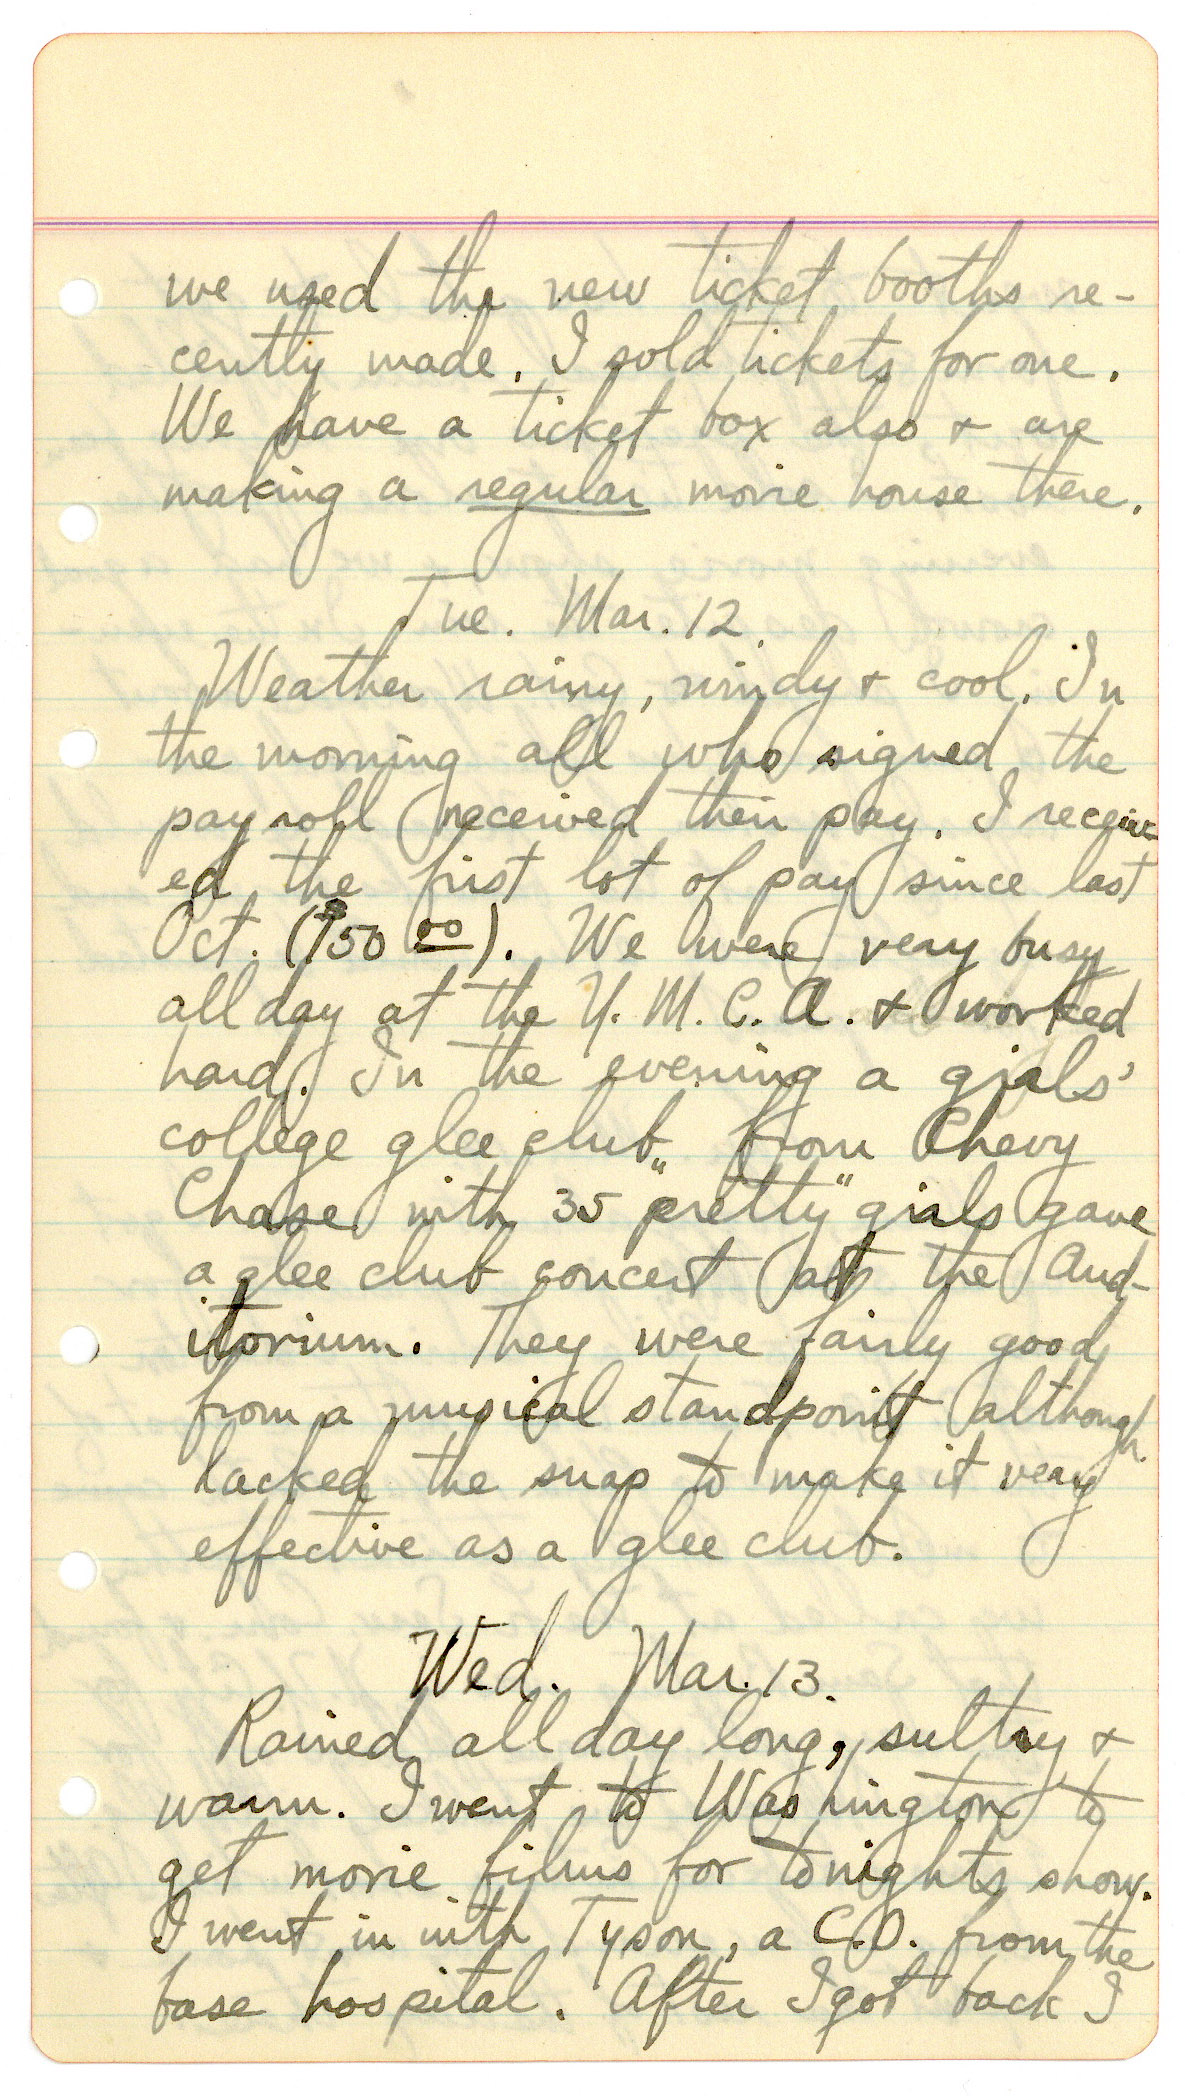 we used the new ticket booths re-
cently made. I sold tickets for one.
We have a ticket box also & are
making a regular movie house there.
Tue. Mar. 12.
Weather rainy, windy & cool. In
the morning all who signed the
payroll received their pay. I receiv-
ed the first lot of pay since last
Oct. ($50 00). We were very busy
all day at the Y.M.C.A. & worked
hard. In the evening a girls'
college glee club from Chevy
Chase with 35 "pretty" girls gave
a glee club concert at the Aud-
itorium. They were fairly good
from a musical standpoint although
lacked the snap to make it very
effective as a glee club.
Wed. Mar. 13.
Rained all day long, sultry &
warm. I went to Washington to
get movie films for tonights show.
I went in with Tyson, a C.O. from the
base hospital. After I got back I